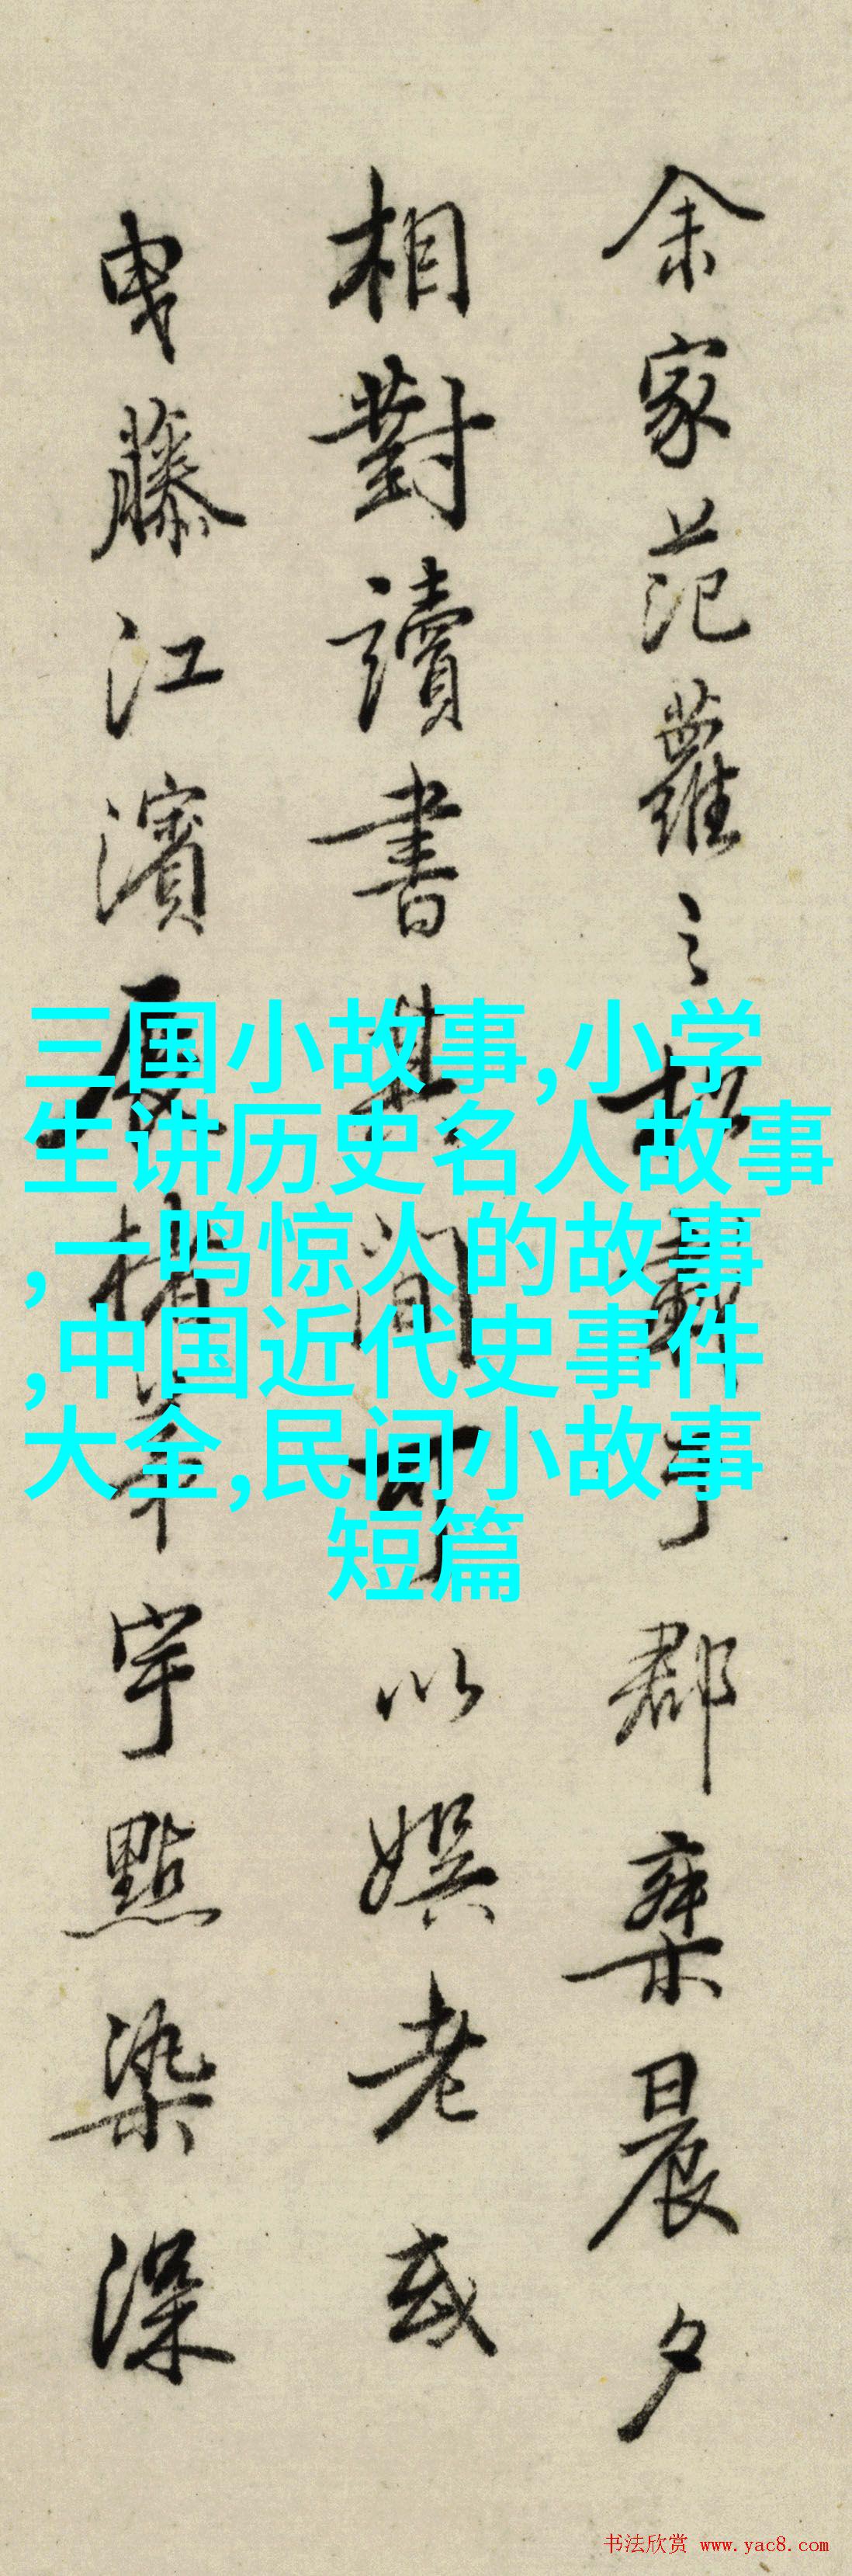 余家范蘿之
郡棊晨夕
相對讀書其間可以娯老或
曳藤江濱展楮華宇點染深
三国小故事,小学
生讲历史名人故事
,一鸣惊人的故事
,中国近代史事件
大全,民间小故事
短篇
书法欣赏 www.yac8.com